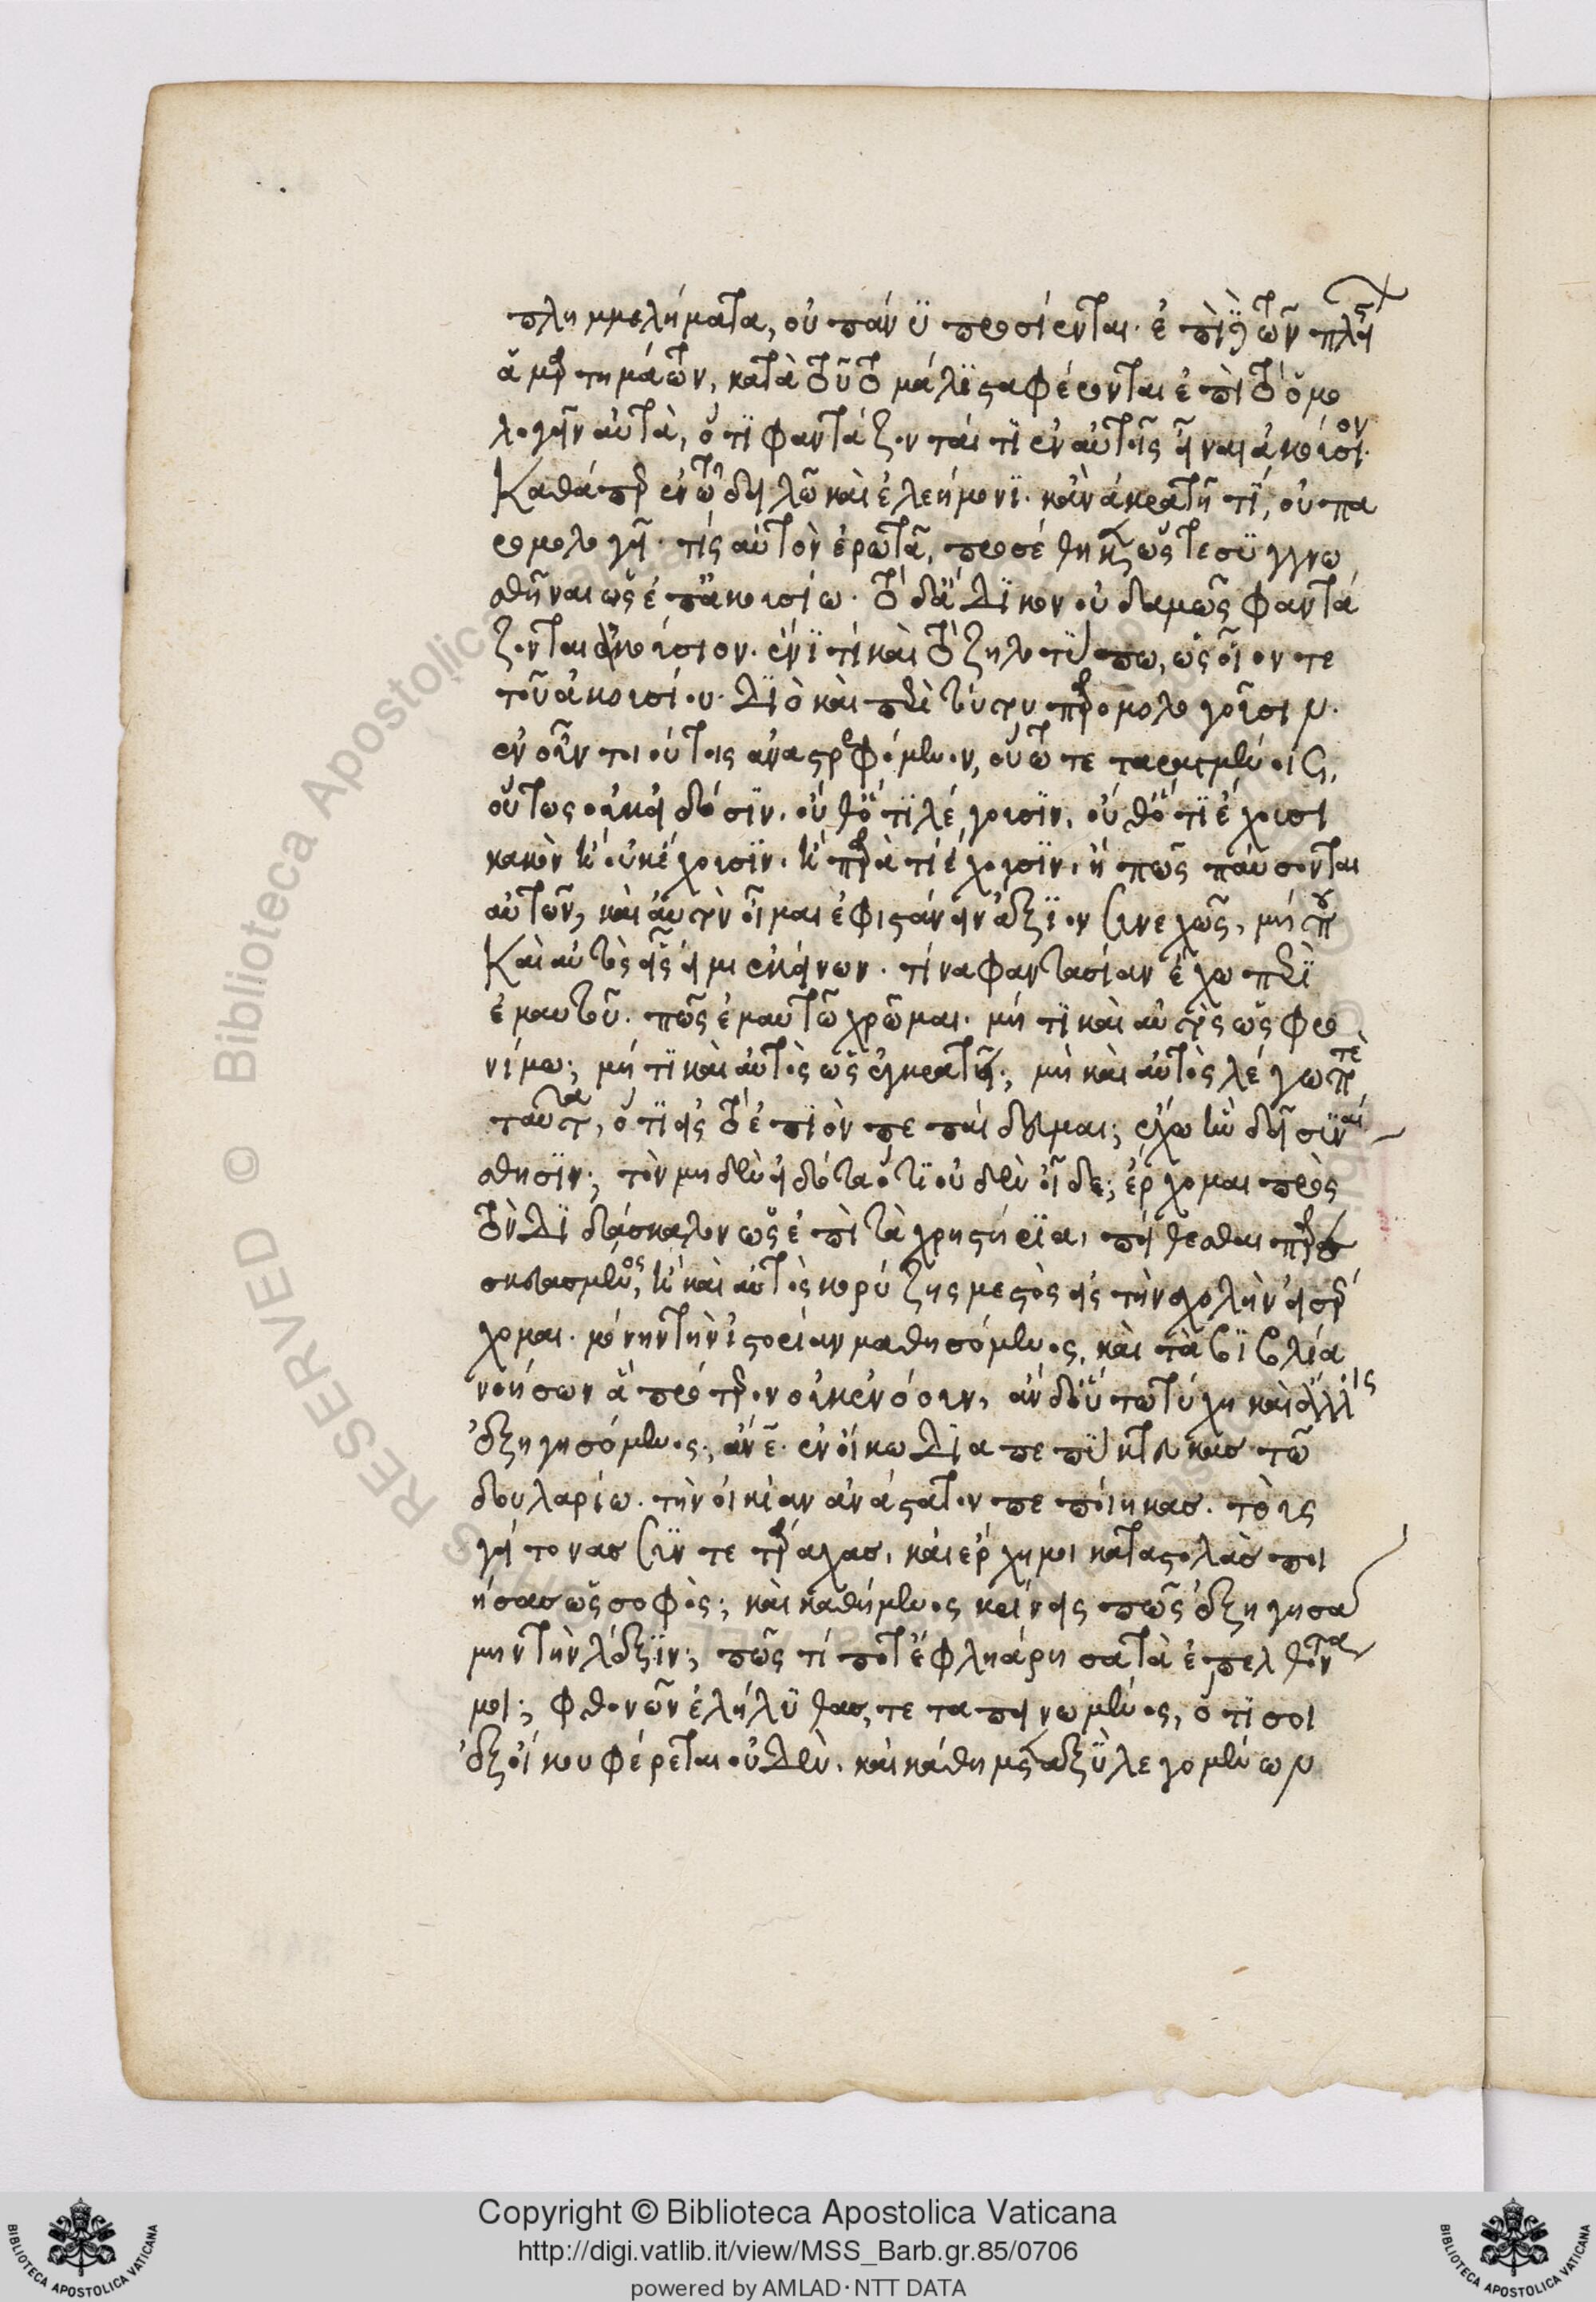 πλημμελήματα, οὐ πάνυ προσίενται· ἐπὶ δὲ τῶν πλεί
ἁμαρτημάτων, κατὰ τοῦτο μάλιστα φέρονται ἐπὶ τὸ ὁμο
λογεῖν αὐτὰ, ὅτι φαντάζονταί τι ἐν αὐτοῖς εἶναι ἀκούσιον·
Καθάπερ ἐν τῷ δειλῷ καὶ ἐλεήμονι· κἂν ἀκρατῆ τί, οὐ πα
ρομολογεῖ· τίς αὐτὸν ἐρωτᾶ, προσέθηκεν ὥστε συγγνω
σθῆναι ὡς ἐπ' ἀκουσίῳ· τὸ δ' ἄδικον οὐδαμῶς φαντά
ζονται ἀκούσιον· ἔνι τί καὶ τῷ ζηλοτύπῳ, ὡς οἴονται
τοῦ ἀκουσίου· διὸ καὶ περὶ τούτου παρομολογοῦσιν·
ἐν οὖν τοιούτοις ἀναστρεφόμενον, οὕτω τεταραγμένοις,
οὕτως οὐκ εἰδόσιν· οὔθ' ὅτι λέγουσιν, οὔθ' ὅτι ἔχουσι
κακὸν ἢ οὐκ ἔχουσιν· ἢ παρὰ τί ἔχουσιν, ἢ πῶς παύσονται
αὐτῶν, καὶ αὐτὸν οἶμαι ἐφιστάνειν ἄξιον συνεχῶς, μή που
Καὶ αὐτὸς εἷς εἰμι ἐκείνων· τίνα φαντασίαν ἔχω περὶ
ἐμαυτοῦ· πῶς ἐμαυτῷ χρῶμαι· μή τι καὶ αὐτὸς ὡς φρο
νίμῳ; μή τι καὶ αὐτὸς ὡς ἐγκρατεῖ; μὴ καὶ αὐτὸς λέγω ποτὲ
ταῦτα, ὅτι εἰς τὸ ἐπιὸν πεπαίδευμαι; ἔχω ἣν δεῖ συναί
σθησιν; τὸν μηδὲν εἰδότα ὅτι οὐδὲν οἶδε; ἔρχομαι πρὸς
τὸν διδάσκαλον ὡς ἐπὶ τὰ χρηστήρια, πείθεσθαι παρε
σκευασμένος, ἢ καὶ αὐτὸς κορύζης μεστὸς εἰς τὴν σχολὴν εἰσέρ
χομαι· μόνην τὴν ἱστορίαν μαθησόμενος, καὶ τὰ βιβλία
νοήσων ἃ πρότερον οὐκ ἐνόουν, ἂν δ' οὕτω τύχῃ καὶ ἄλλοις
ἐξηγησόμενος; ἄνθρωπε· ἐν οἴκῳ διαπεπύκτευκας τῷ
δουλαρίῳ· τὴν οἰκίαν ἀνάστατον πεποίηκας· τοὺς
γείτονας συντετάραχας, καὶ ἔρχῃ μοι καταστολὰς ποι
ήσας ὡς σοφὸς; καὶ καθήμενος κρίνεις πῶς ἐξηγησά
μην τὴν λέξιν; πῶς τί ποτ' ἐφλυάρησα τὰ ἐπελθόντα
μοι; φθονῶν ἐλήλυθας, τεταπεινωμένος, ὅτι σοι
ἐξ οἴκου φέρεται οὐδὲν· καὶ κάθῃ μεταξὺ λεγομένων